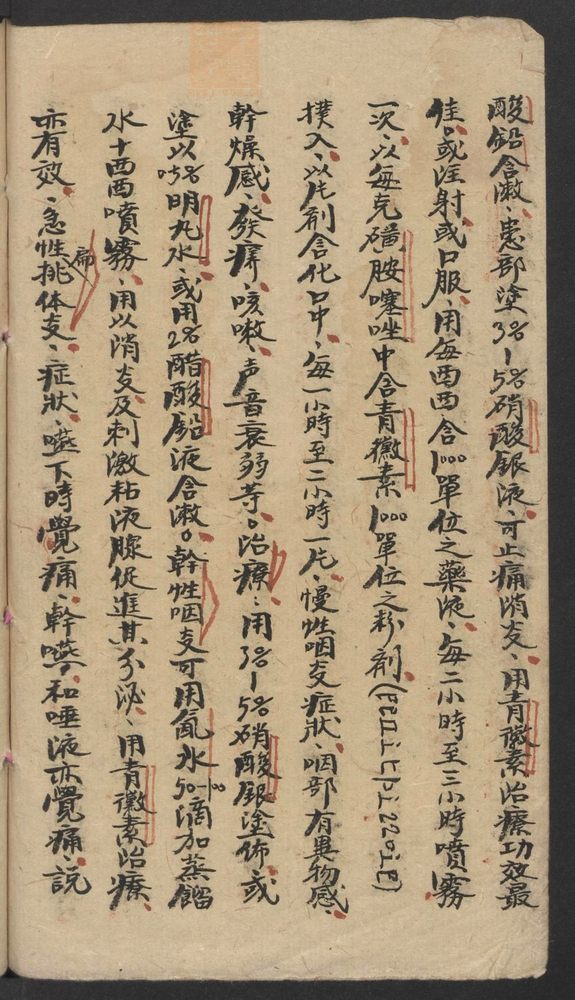 酸鉛含漱、患部塗3%—5%硝酸銀液、可止痛消炎、用青黴素治療功效最
佳。或注射或口服、用每西西含1000單位之藥液、每二小時至三小時噴霧
一次、以每克磺胺噻唑中含青黴素1000單位之粉劑
撲入、以片劑含化口中、每一小時至二小時一片、慢性咽炎症狀、咽部有異物感、
幹燥感、發癢、咳嗽、声音衰弱等。治療：用3%—5%硝酸銀塗佈、或
塗以0.5%明九水、或用2%醋酸鉛液含漱。幹性咽炎可用氤水50—100滴加蒸餾
水十西西噴霧、用以消炎及刺激粘液腺促進其分泌、用青黴素治療、
亦有效、急性扁挑体炎、症狀、嚥下時覺痛、幹嚥、和唾液亦覺痛、説